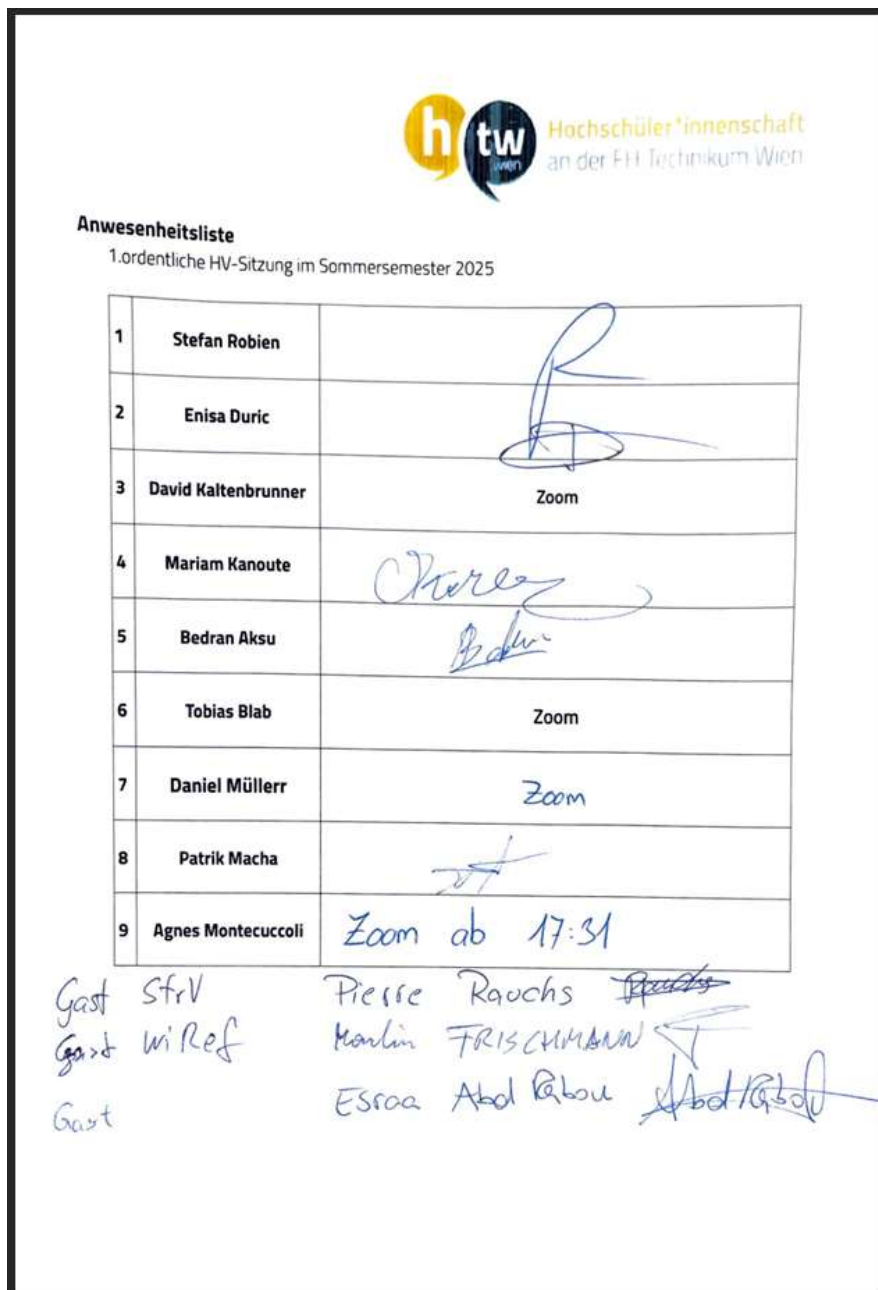 htw wien Hochschüler*innenschaft
an der FH Technikum Wien
Anwesenheitsliste
1.ordentliche HV-Sitzung im Sommersemester 2025
1 Stefan Robien
2 Enisa Duric
3 David Kaltenbrunner Zoom
4 Mariam Kanoute
5 Bedran Aksu
6 Tobias Blab Zoom
7 Daniel Müllerr Zoom
8 Patrik Macha
9 Agnes Montecuccoli Zoom ab 17:31
Gast StrV Pierre Rauchs Rauchs
Gast WiRef FRISCHMANN
Gast Esraa Abd Rabou Abd Rabou